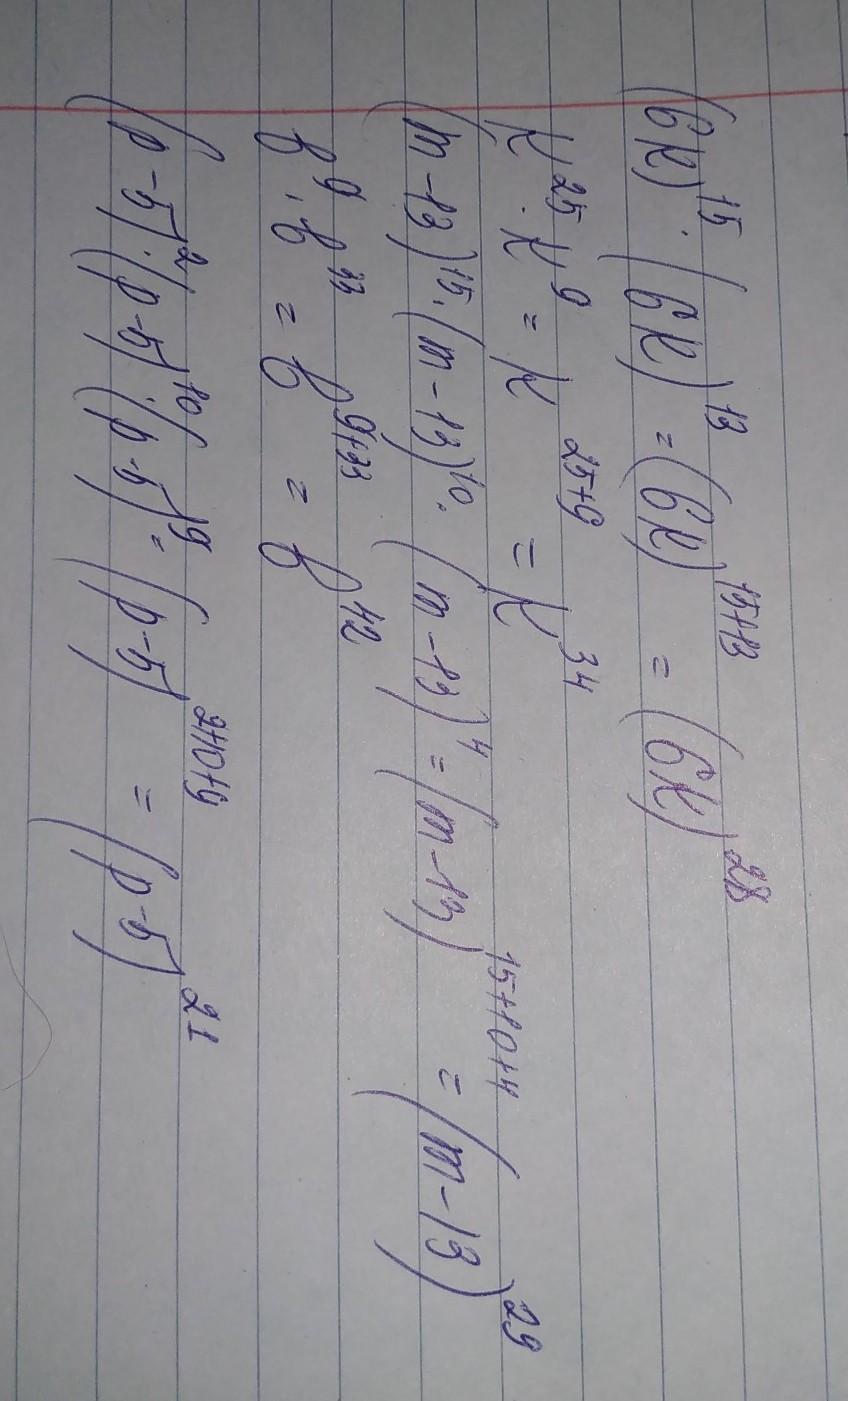 (6k)¹⁵ · (6k)¹³ = (6k)¹⁵⁺¹³ = (6k)²⁸
k²⁵ · k⁹ = k²⁵⁺⁹ = k³⁴
(m-13)¹⁵ · (m-13)¹⁰ · (m-13)⁴ = (m-13)¹⁵⁺¹⁰⁺⁴ = (m-13)²⁹
b⁹ · b³³ = b⁹⁺³³ = b⁴²
(p-5)² · (p-5)¹⁰ · (p-5)⁹ = (p-5)²⁺¹⁰⁺⁹ = (p-5)²¹